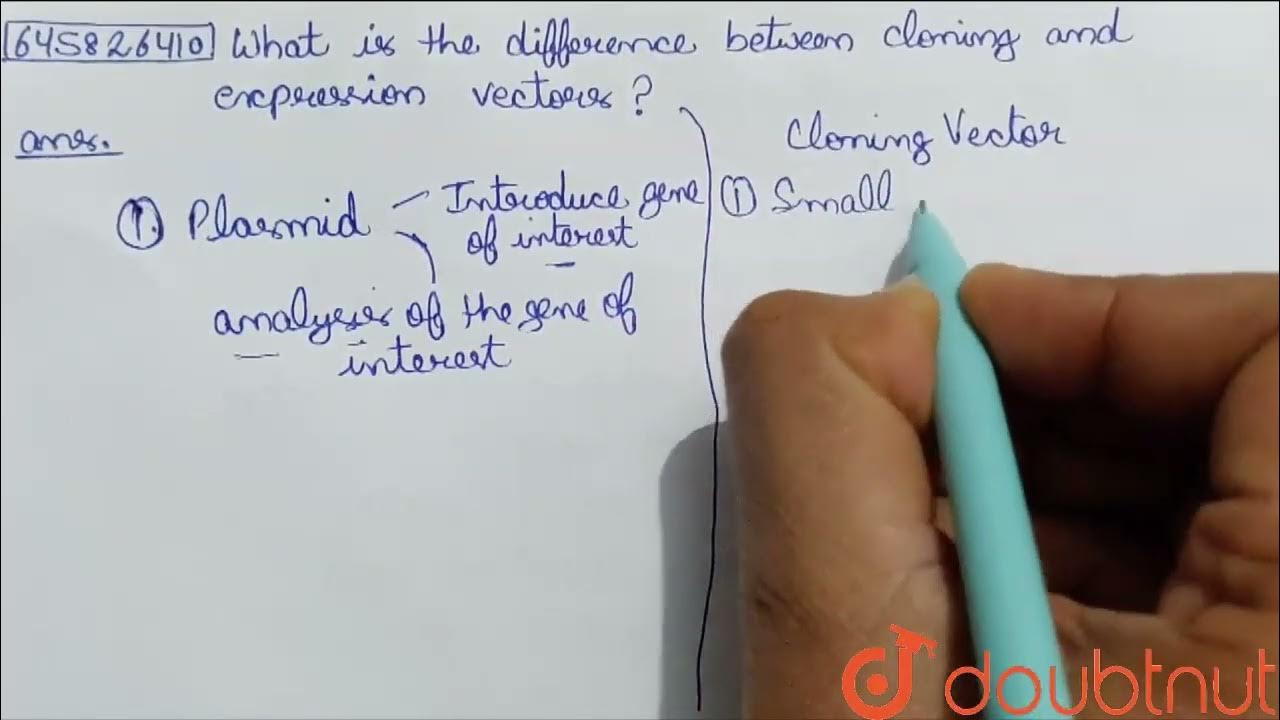 645826410 What is the difference between cloning and
expression vectors?
ans.
① Plasmid - Introduce gene
of interest
analysis of the gene of
interest
Cloning Vector
① Small
doubtnut